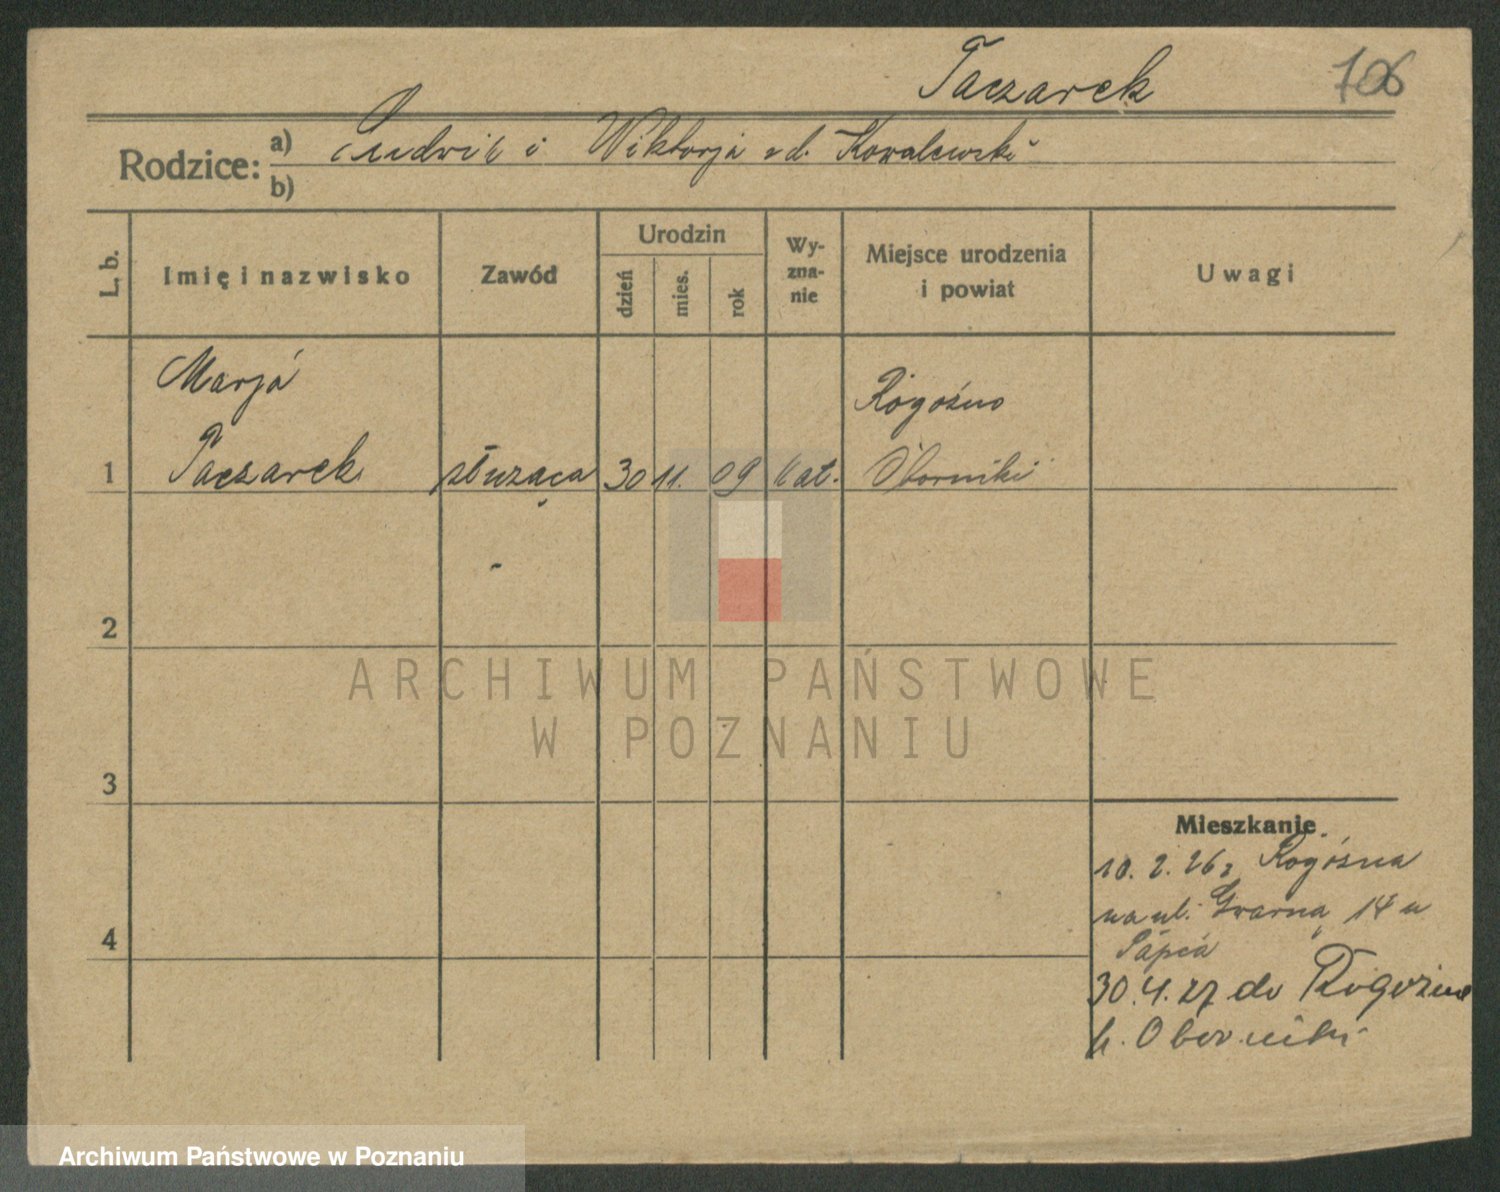 Taczarek 706
Rodzice: a) Ludwik i Wiktorja z d. Kowalewski
b)
L. b. Imię i nazwisko Zawód Urodzin dzień mies. rok Wy-zna-nie Miejsce urodzenia i powiat Uwagi
Marja Rogoźno
1 Taczarek służąca 30 11. 09 kat. Oborniki
2
ARCHIWUM PAŃSTWOWE
W POZNANIU
3
Mieszkanie
10. 2. 26 z Rogoźna
na ul. Gwarna 14 u
4
30. 4. 27 do Rogoźna
p. Oborniki
Archiwum Państwowe w Poznaniu